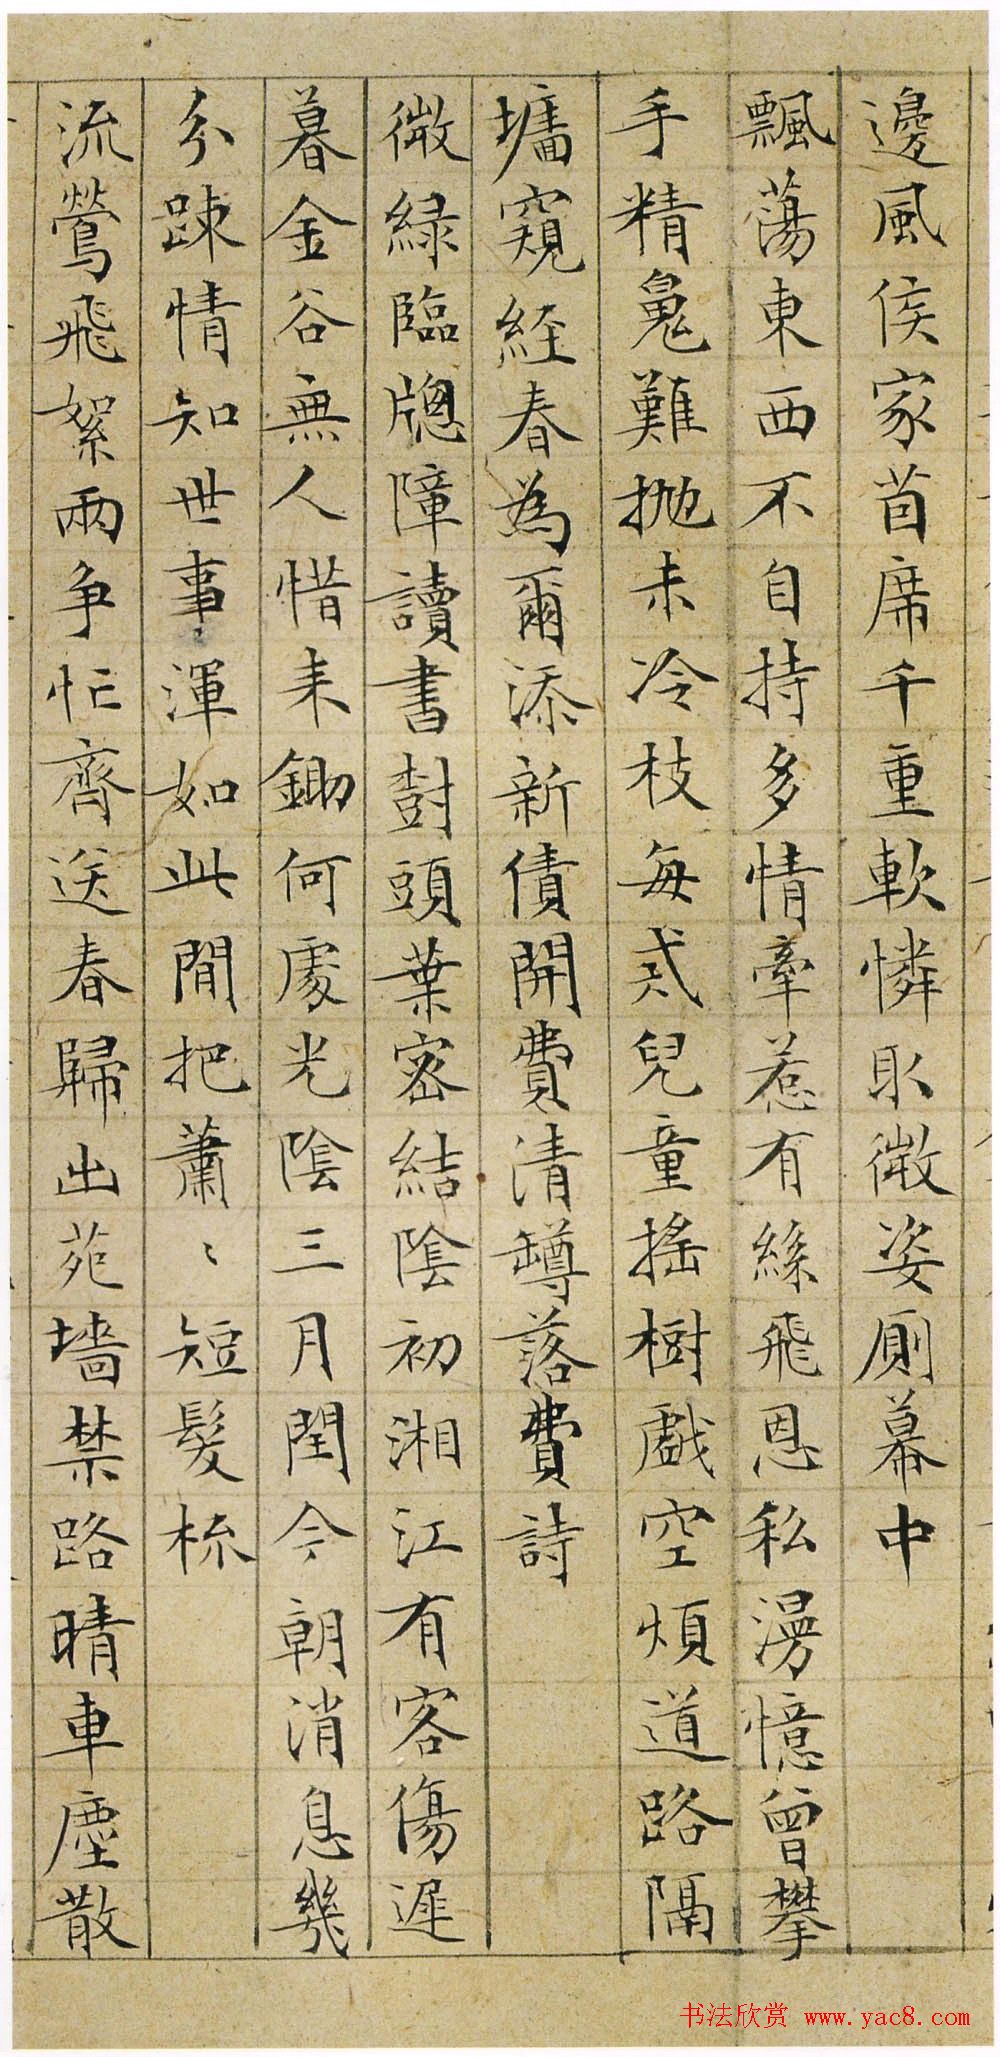 邊風侯家茵席千重軟憐取微姿廁幕中
飄蕩東西不自持多情牽惹有絲飛恩私漫憶曾攀
手精䰟難抛未冷枝每貳兒童搖樹戲空煩道路隔
墻窺經春為爾添新債開費清罇落費詩
微綠臨牕障讀書樹頭葉密結陰初湘江有客傷遲
暮金谷無人惜未鋤何處光陰三月閏今朝消息幾
分踈情知世事渾如此閒把蕭〻短髮梳
流鶯飛絮兩争忙齊送春歸出苑墻禁路晴車塵散
书法欣赏 www.yac8.com